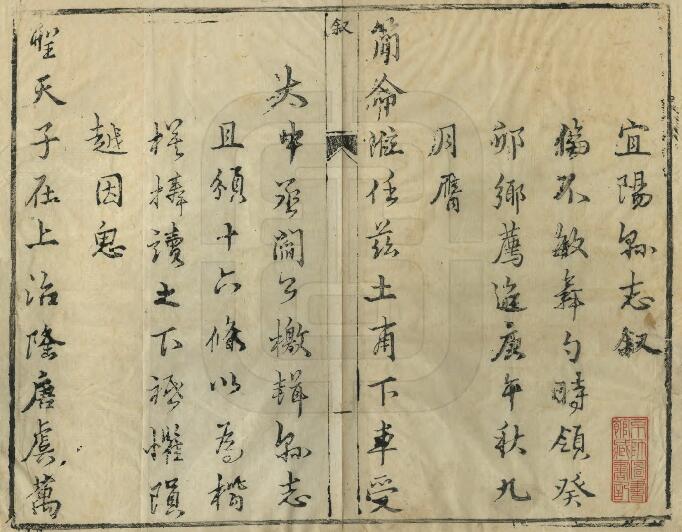 宜陽縣志叙
痛不敏彝勺時領癸
卯鄉薦迨庚午秋九
月膺
簡命降任茲土甫下車受
叙
一
大中丞閻公檄輯縣志
且頒十六條以為楷
模捧讀之下祗懼隕
越因思
聖天子在上治隆唐虞萬